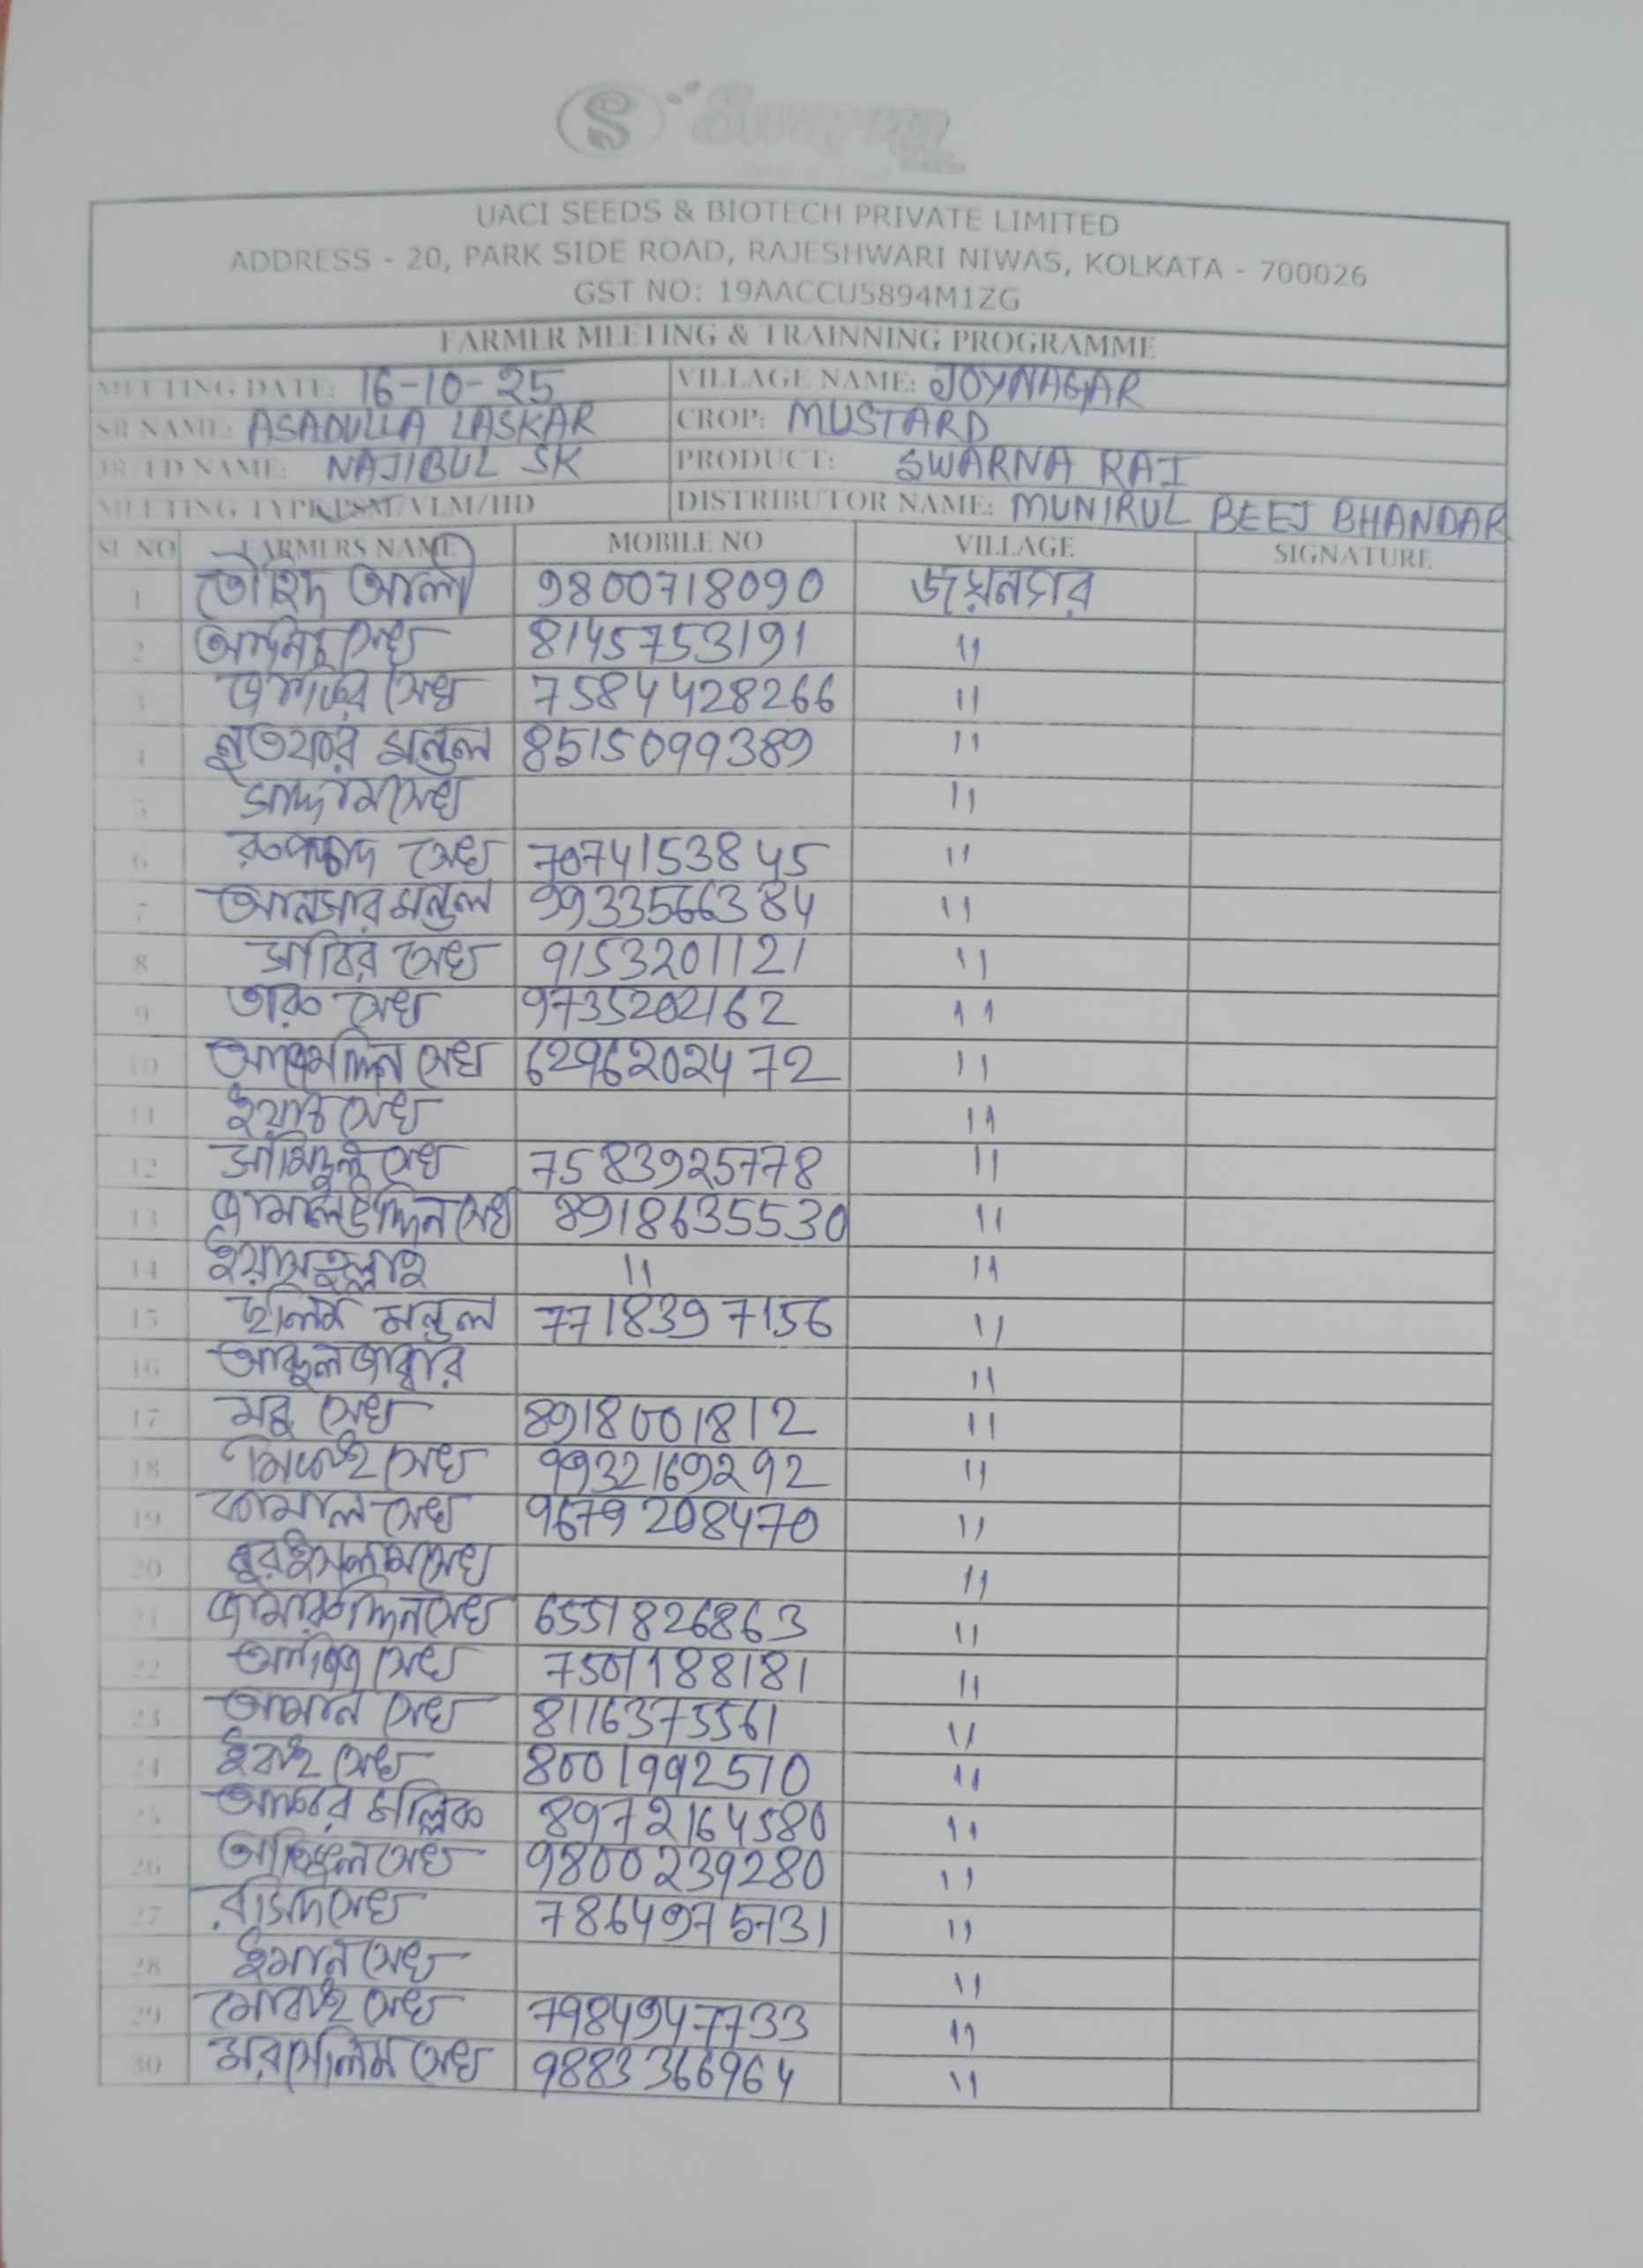 S Swarna
UACI SEEDS & BIOTECH PRIVATE LIMITED
ADDRESS - 20, PARK SIDE ROAD, RAJESHWARI NIWAS, KOLKATA - 700026
GST NO: 19AACCU5894M1ZG
FARMER MEETING & TRAINNING PROGRAMME
MEETING DATE: 16-10-25 VILLAGE NAME: JOYNAGAR
SR NAME: ASADULLA LASKAR CROP: MUSTARD
NAME: NAJIBUL SK PRODUCT: SWARNA RAI
MEETING TYPE: PSM/VLM/HD DISTRIBUTOR NAME: MUNIRUL BEEJ BHANDAR
SL NO FARMERS NAME MOBILE NO VILLAGE SIGNATURE
1 তৌহিদ আলী 9800718090 জয়নগর
2 সেখ 8145753191 "
3 সেখ 7584428266 "
4 লুতফার মন্ডল 8515099389 "
5 সাদ্দাম সেখ "
6 রুপচাঁদ সেখ 7074153845 "
7 আনসার মন্ডল 9933566384 "
8 সাবির সেখ 9153201121 "
9 তারু সেখ 9735202162 "
10 সেখ 6296202472 "
11 সেখ "
12 সেখ 7583925778 "
13 জামালউদ্দিন সেখ 8918635530 "
14 " "
15 হালিম মন্ডল 7718397156 "
16 আব্দুল জাব্বার "
17 সেখ 8918001812 "
18 সেখ 9932169292 "
19 কামাল সেখ 9679208470 "
20 নুরইসলাম সেখ "
21 জামারুদ্দিন সেখ 6551826863 "
22 সেখ 7501188181 "
23 আমান সেখ 8116375561 "
24 সেখ 8001992510 "
25 মল্লিক 8972164580 "
26 সেখ 9800239280 "
27 সেখ 7864975731 "
28 ইমান সেখ "
29 সেখ 7984947733 "
30 মরসেলিম সেখ 9883366964 "